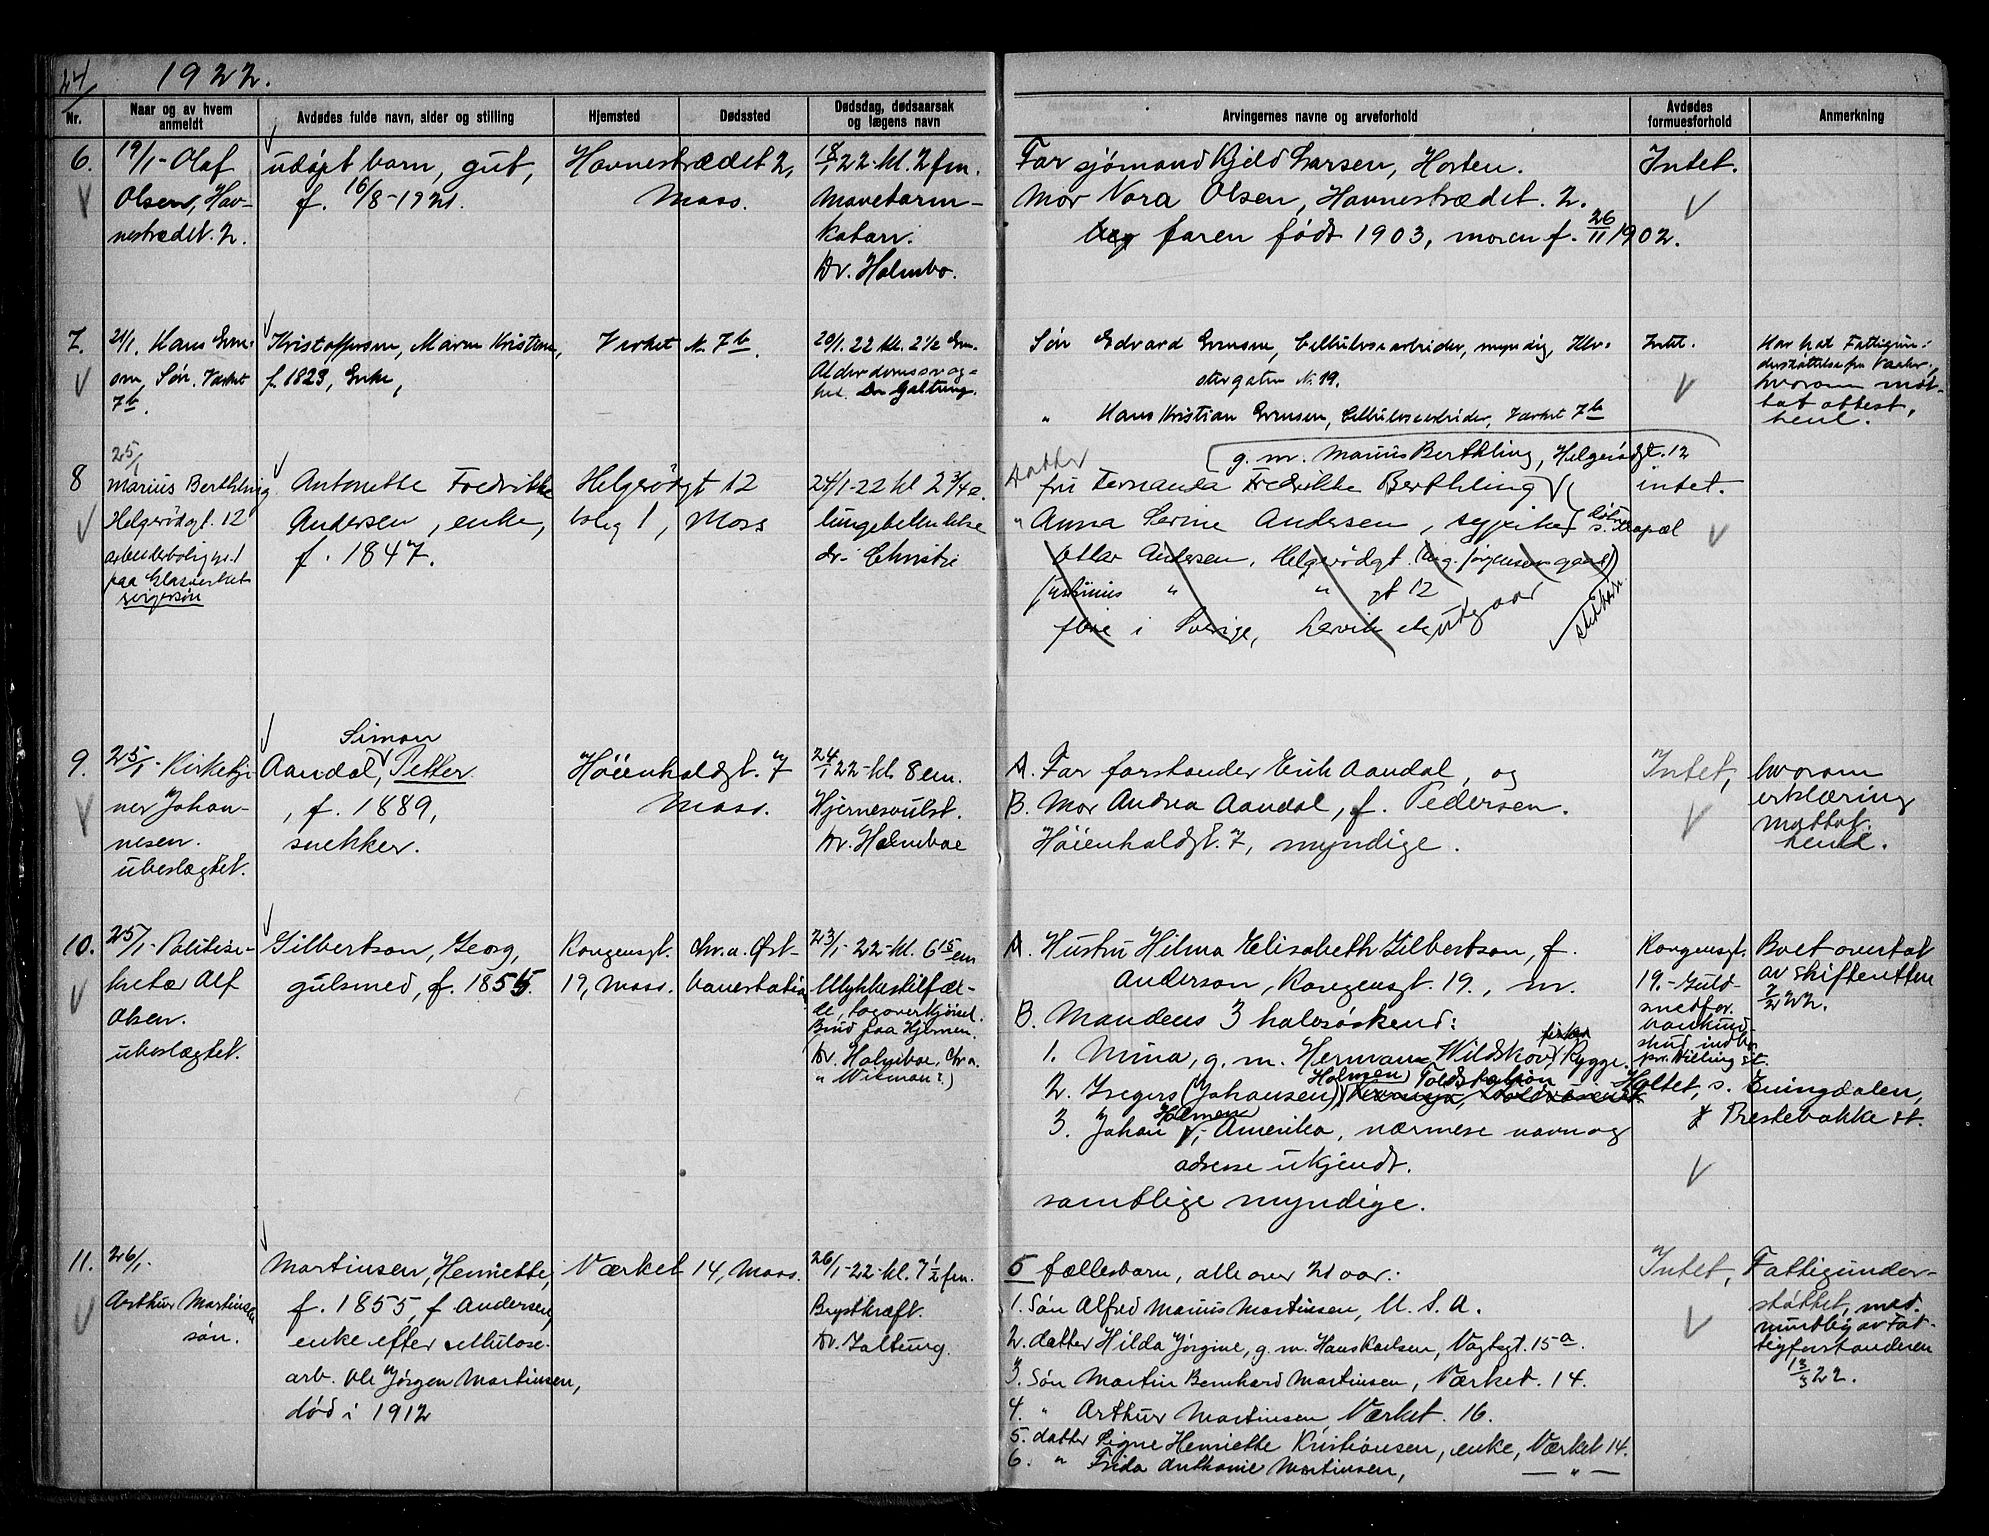 24
1922.
Nr.
Naar og av hvem anmeldt
Avdødes fulde navn, alder og stilling
Hjemsted
Dødssted
Dødsdag, dødsaarsak og lægens navn
Arvingernes navne og arveforhold
Avdødes formuesforhold
Anmerkning
6.
19/1 - Olaf
Olsen, Hav-
nestrædet. 2.
udøpt barn, gut,
f. 16/8 - 1921.
Havnestrædet 2,
Moss.
18/1 22 - kl. 2 fm.
Mavetarm-
katarr.
Dr. Holmbo.
Far sjømand Kjeld Larsen, Horten.
Mor Nora Olsen, Havnestrædet. 2.
faren født 1903, moren f. 26/11 1902.
Intet.
7.
21/1. Hans
Søn. Værket
7b.
Kristoffersen, Maren Kristine,
f. 1823, Enke,
Værket N. 7b.
20/1. 22 kl. 2½ Em.
Alderdomssvag-
het. Dr Galtung.
Søn Edvard Evensen, Cellulosearbeider, myndig,
N. 19.
" Hans Kristian Evensen, Cellulosearbeider, Værket 7b
Intet.
Har hat Fattigun-
derstøttelse fra Vaaler,
hvorom mot-
tat attest,
henl.
25/1
8
Marius Berthling
Helgerødgt. 12
arbeiderbolig nr. 1
paa Glasverket
svigersøn
Antonette Fredrikke
Andersen, enke,
f. 1847.
Helgerødgt 12
bolig 1, Moss
24/1 - 22 kl 2 3/4 e.
lungebetendelse
dr. Christie
Datter
g. m. Marius Berthling, Helgerødgt. 12
fru Fernanda Fredrikke Berthling
" Anna Serine Andersen, sypike
Andersen, Helgerødgt. (Aug. Jørgensen gaard)
Justinius " " gt 12
flere i Sverige, Larvik etc utgaar
intet.
9.
25/1 - Kirketje
ner Johan-
nesen.
ubeslægtet.
Simon
Aandal, Petter
, f. 1889,
snekker.
Høienhaldgt. 7
Moss.
24/1 22 - kl. 8 em.
Hjernesvulst.
Dr. Holmboe
A. Far forstander Erik Aandal, og
B. Mor Andrea Aandal, f. Pedersen.
Høienhaldgt. 7, myndige.
Intet,
hvorom
erklæring
mottat.
henl.
10.
25/1 - Politise-
kretær Alf
Olsen.
ubeslægtet.
Gilbertson, Georg,
gulsmed, f. 1855.
Kongensgt.
19, Moss.
Chr.a. Øst-
banestation
23/1 - 22 - kl. 6 15 em
Ulykkestilfæl-
de, togoverkjørsel.
Brud paa Hjernen.
Dr. Holmboe, Chr.a.
" Wikman?)
A. Hustru Hilma Elisabeth Gilbertson, f.
Anderson, Kongensgt. 19., m.
B. Mandens 3 halvsøskend:
1. Mina, g. m. Herman Wildskov, Rygge.
Holmsen, Toldstation
2. Gregers (Johansen) Holtet, s. Enningdalen,
Prestebakke st.
Holmsen
3. Johan, Amerika, nærmere navn og
adresse ukjendt.
samtlige myndige.
Kongensgt.
19. - Guld-
smedfor.
bankind-
skud, indbo
pr. Dilling st.
Boet overtat
av skifteretten
7/2 22.
11.
26/1.
Arthur Martinsen
søn.
Martinsen, Henriette,
f. 1855, f Andersen,
enke efter cellulose-
arb. Ole Jørgen Martinsen,
død i 1912
Værket 14, Moss.
26/1 - 22 - kl. 7 ½ fm.
Brystkræft.
Dr. Galtung.
5 fællesbarn, alle over 21 aar:
1. Søn Alfred Marius Martinsen, U. S. A.
2. datter Hilda Jørgine, g. m. Hans Karlsen, Vogtsgt. 15a.
3. Søn Martin Bernhard Martinsen, Værket. 14.
4. " Arthur Martinsen Værket. 16.
5. datter Signe Henriette Kristiansen, enke, Værket 14.
6. " Frida Anthonie Martinsen, — " —
Intet,
Fattigunder-
støttet, med.
mundtlig av Fat-
tigforstanderen
13/3 22.